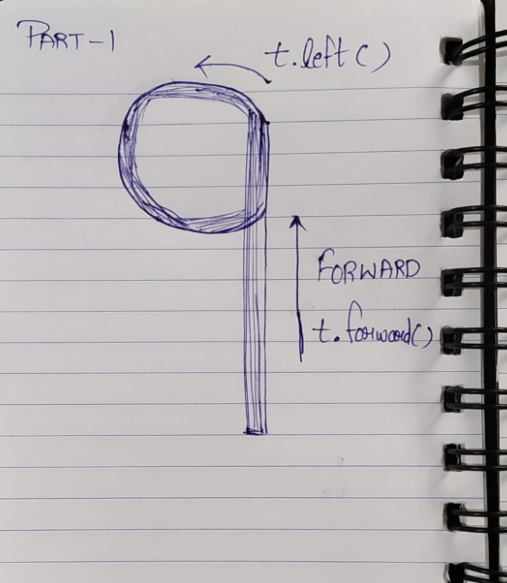 PART-1
t.left()
FORWARD
t.forward()